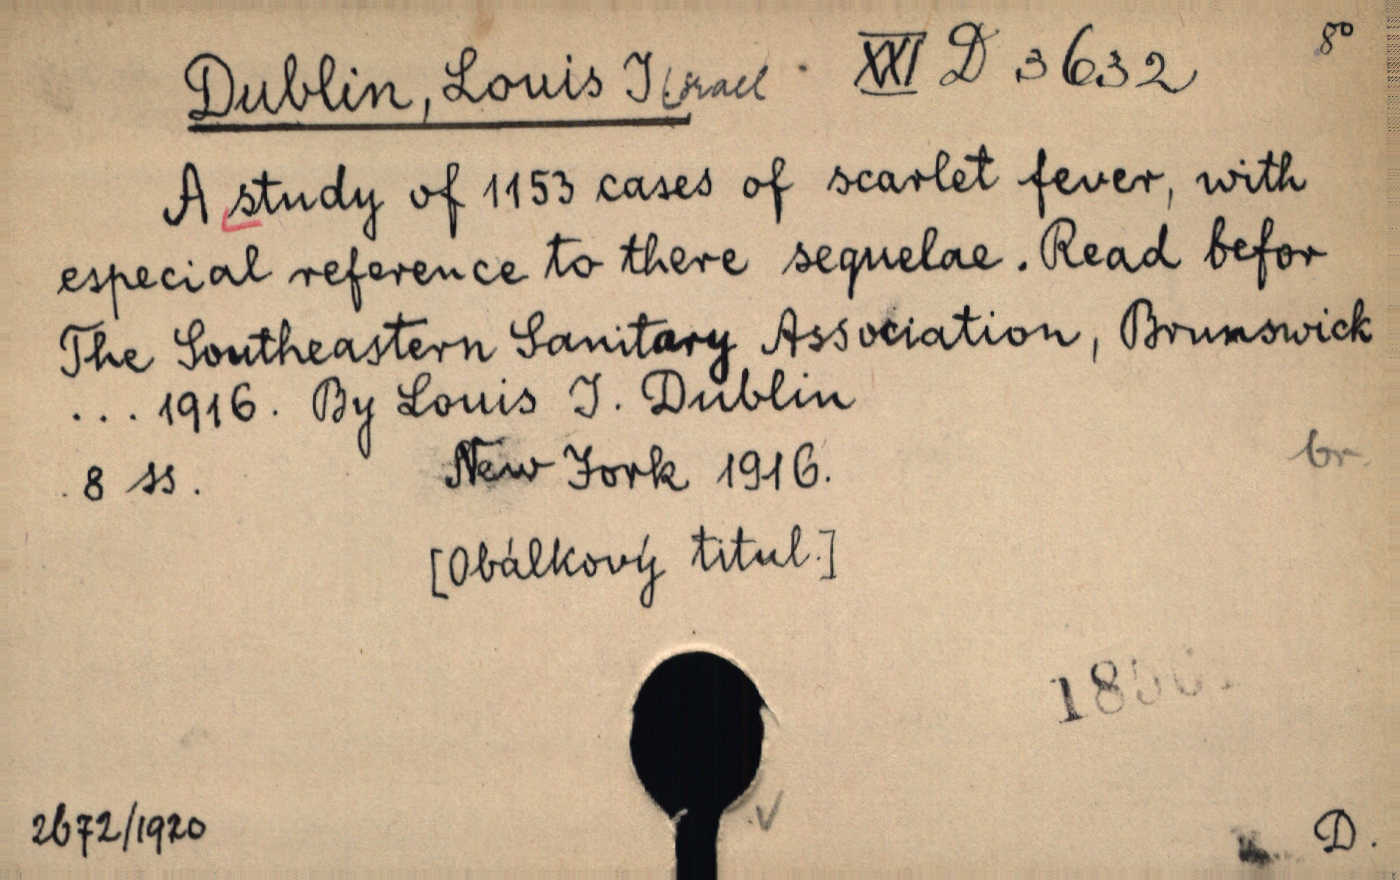 Dublin, Louis Israel. XXI D 3632 8°
A study of 1153 cases of scarlet fever, with
especial reference to there sequelae. Read befor
The Southeastern Sanitary Association, Brunswick
... 1916. By Louis I. Dublin
8 ss. New York 1916. br.
[Obálkový titul.]
2672/1920 D.